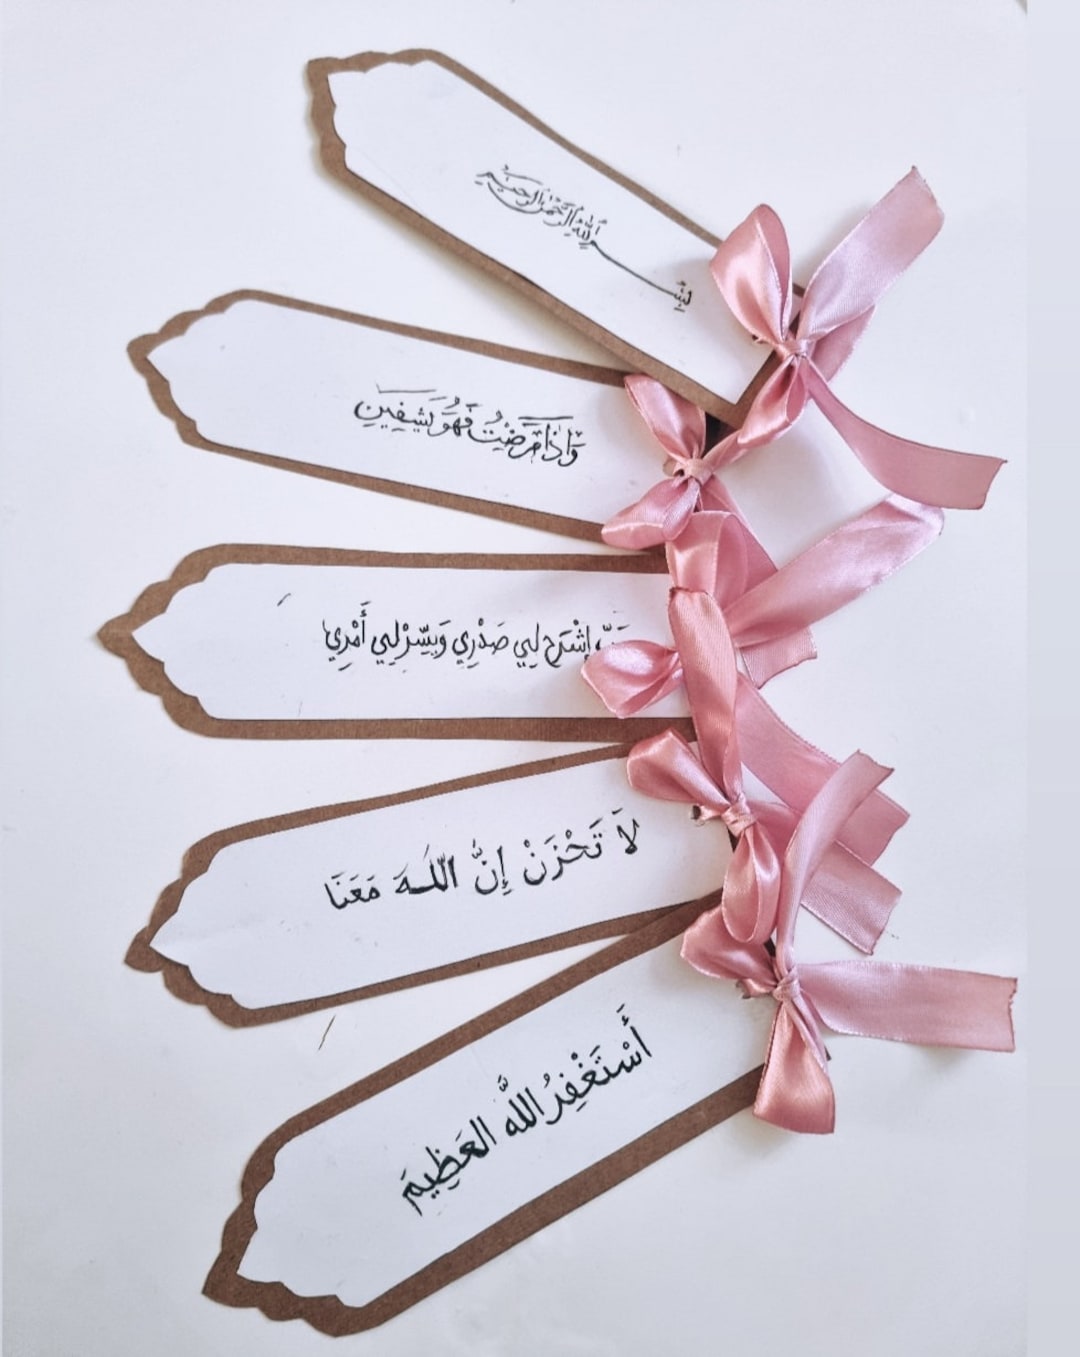 بِسْمِ اللهِ الرَّحْمٰنِ الرَّحِيمِ
وَإِذَا مَرَضْتُ فَهُوَ يَشْفِينِ
اِشْرَح لِي صَدْرِي وَيَسِّرْ لِي أَمْرِي
لَا تَحْزَنْ إِنَّ اللَّهَ مَعَنَا
أَسْتَغْفِرُ اللَّه العَظِيمَ